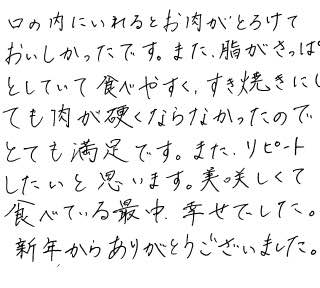 口の内にいれるとお肉がとろけて
おいしかったです。また、脂がさっぱ
としていて食べやすく、すき焼きにし
ても肉が硬くならなかったので
とても満足です。また、リピート
したいと思います。美味しくて
食べている最中、幸せでした。
新年からありがとうございました。